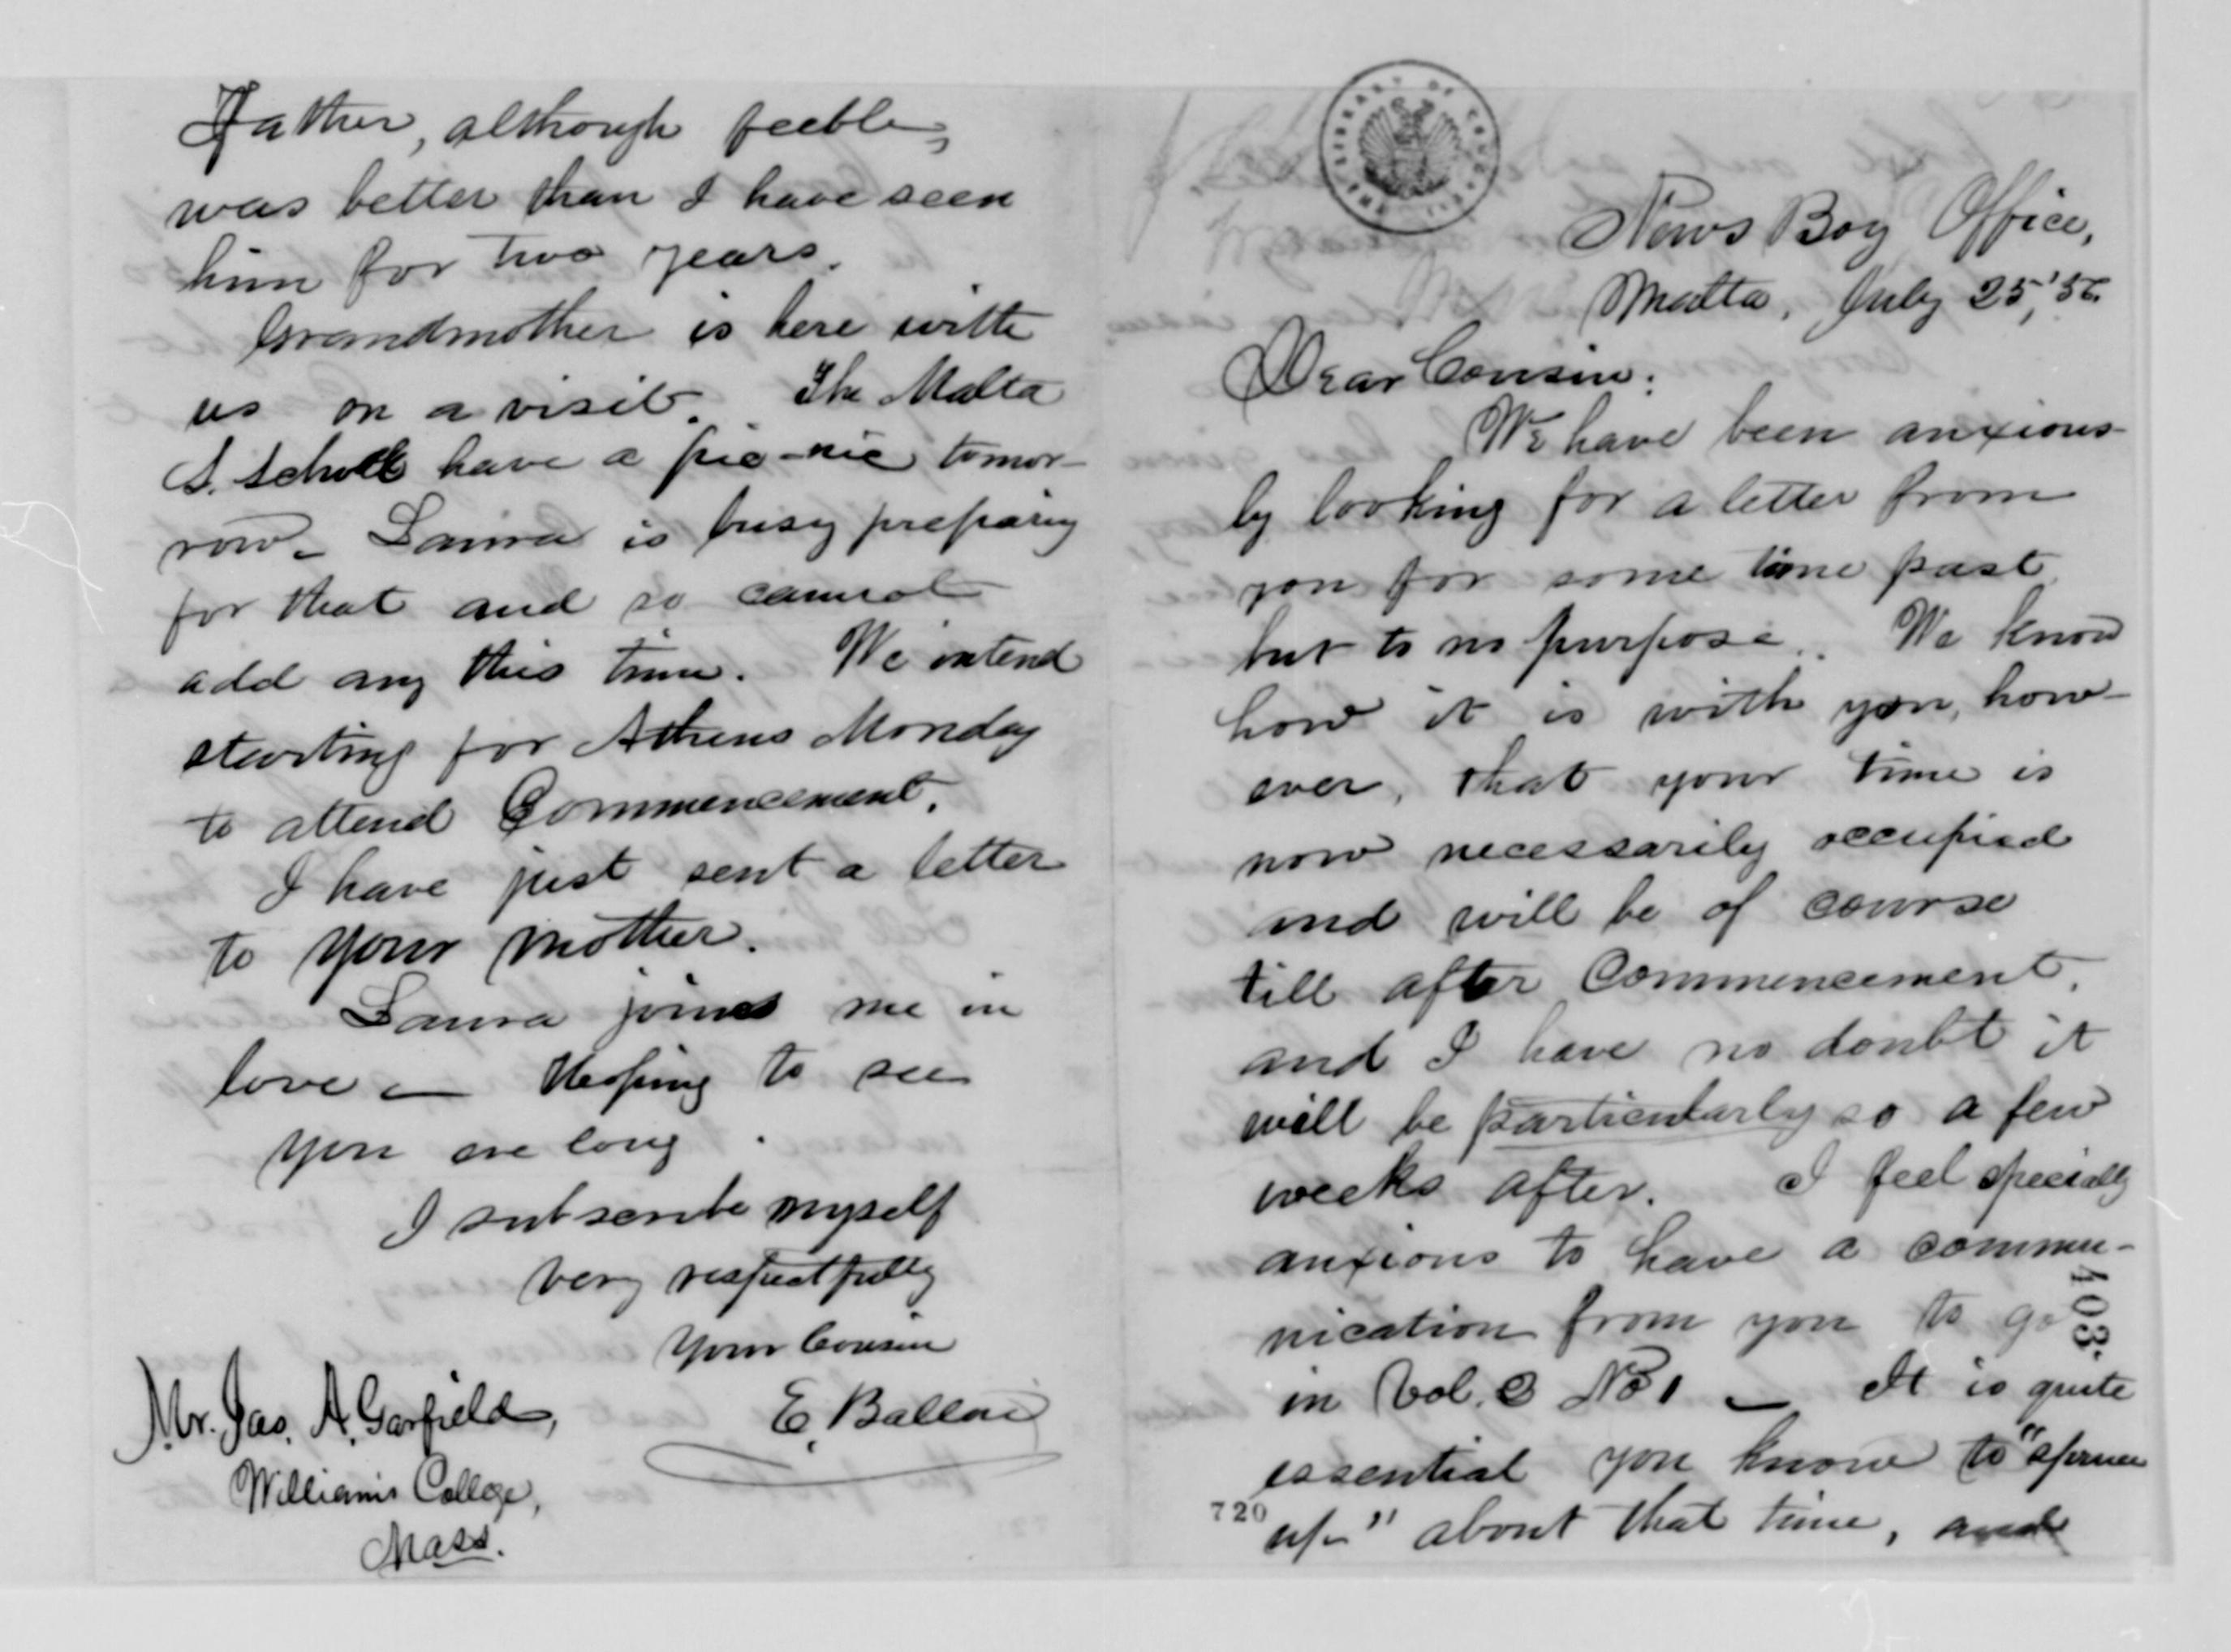 News Boy Office,
Malta, July 25, '56.
Dear Cousin:
We have been anxious-
ly looking for a letter from
you for some time past
but to no purpose. We know
how it is with you, how-
ever, that your time is
now necessarily occupied
and will be of course
till after Commencement.
and I have no doubt it
will be particularly so a few
weeks after. I feel specially
anxious to have a commu-
nication from you to go
in Vol. 3 No 1 — It is quite
essential you know to "spruce
up" about that time, and
403.
720
Father, although feeble,
was better than I have seen
him for two years.
Grandmother is here with
us on a visit. The Malta
S. School have a pic-nic tomor-
row. Laura is busy preparing
for that and so cannot
add any this time. We intend
starting for Athens Monday
to attend Commencement.
I have just sent a letter
to your mother.
Laura joins me in
love — Hoping to see
you ere long.
I subscribe myself
very respectfully
Your Cousin
E. Ballou
Mr. Jas. A. Garfield,
Williams College,
Mass.
LIBRARY OF CONGRESS